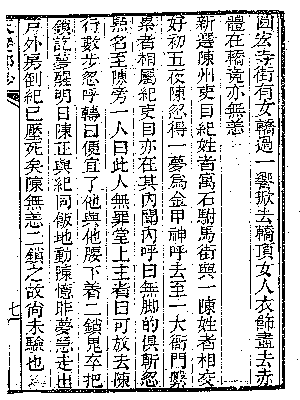 圓宏寺街有女轎過一響掀去轎頂女人衣飾盡去赤
體在轎竟亦無恙
新選陳州吏目紀姓者寓石駙馬街與一陳姓者相交
好初五夜陳忽得一夢爲金甲神呼去至一大衙門繫
累者相屬紀吏目亦在其內聞內呼曰無脚的俱斬忽
點名至陳旁一人曰此人無罪堂上主者曰可放去陳
行數步忽呼轉曰便宜了他與他腰下着一鎖鬼卒把
鎖訖夢醒明日陳正與紀同飯地動陳憶昨夢急走出
戶外房倒紀已壓死矣陳無恙一鎖之故尚未驗也
七